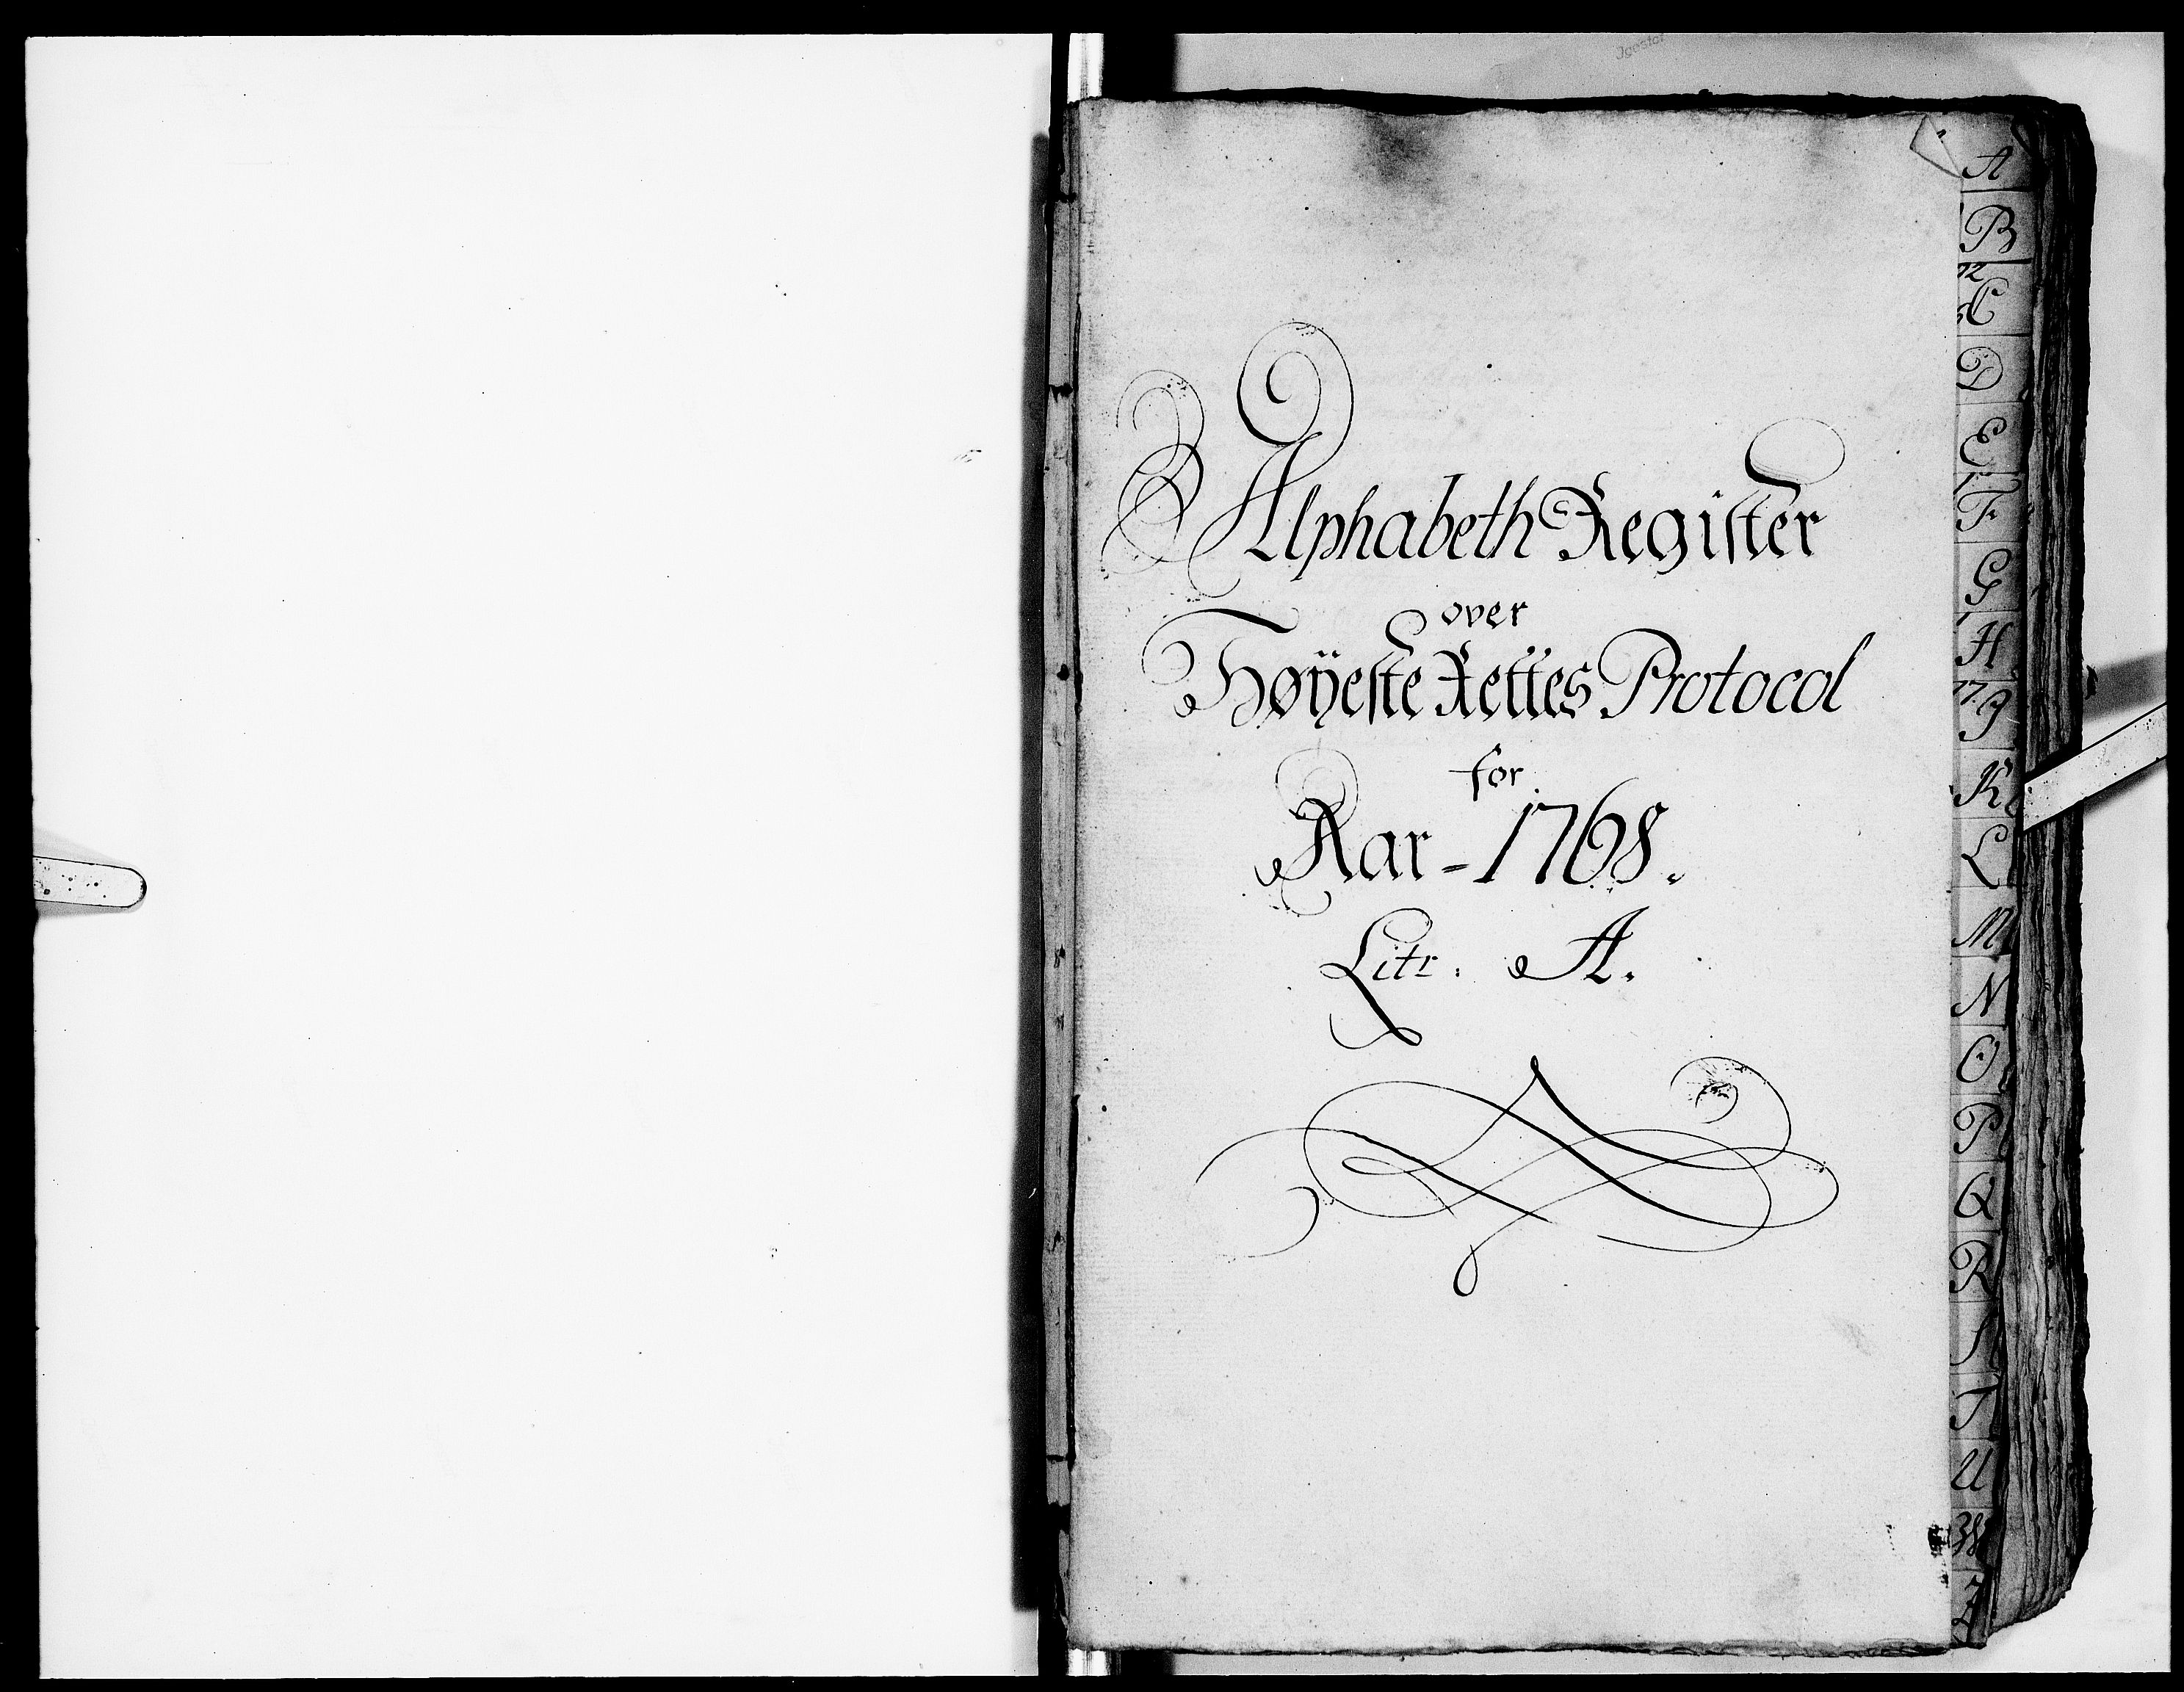 Alphabeth Register
over
Høÿeste Rettes Protocol
for
Aar - 1768.
Litr. A.
A
B
C
D
E
F
G
H
K
L
M
N
O
P
Q
R
S
T
U